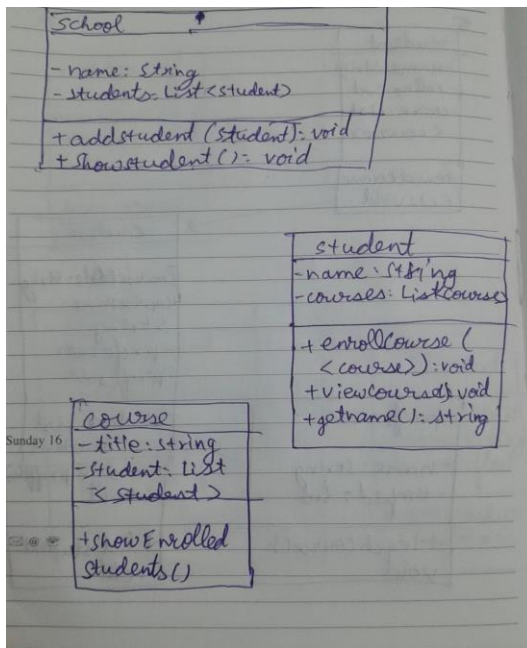 school
- name: string
- students: List<student>
+ addstudent (student): void
+ showstudent (): void
student
- name: string
- courses: List<course>
+ enrollcourse (
<course>): void
+ viewcourses(): void
+ getname(): string
course
Sunday 16
- title: string
- student: List
< student >
+ showEnrolled
students()